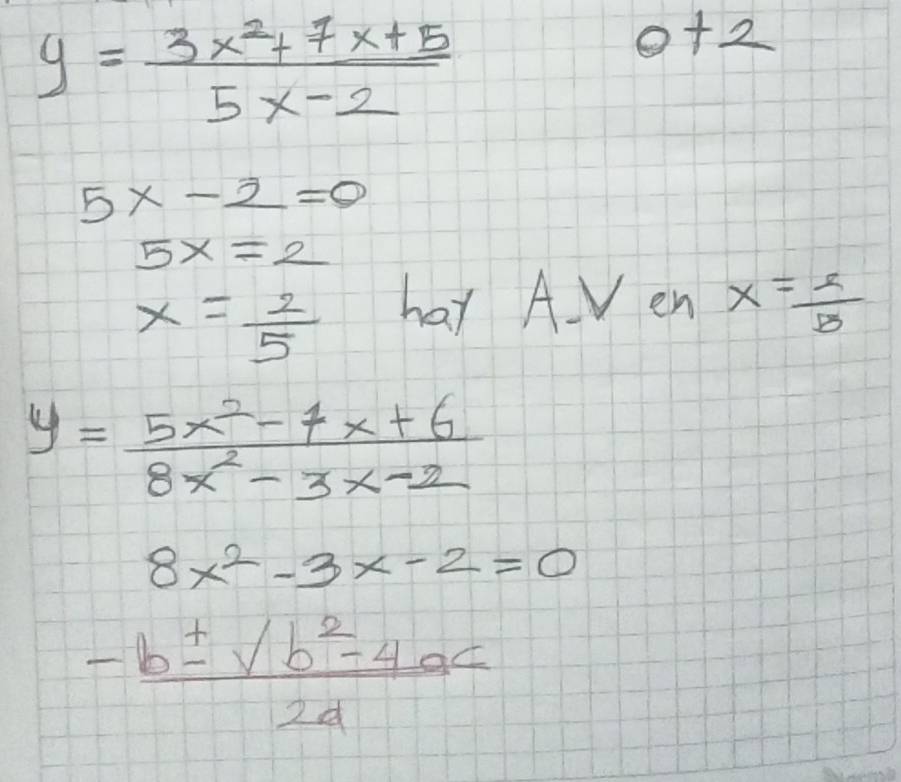 y = (3x² + 7x + 5) / (5x - 2)    0 + 2
5x - 2 = 0
5x = 2
x = 2/5 hay A.V en x = 2/5
y = (5x² - 7x + 6) / (8x² - 3x - 2)
8x² - 3x - 2 = 0
(-b ± √b² - 4ac) / 2a